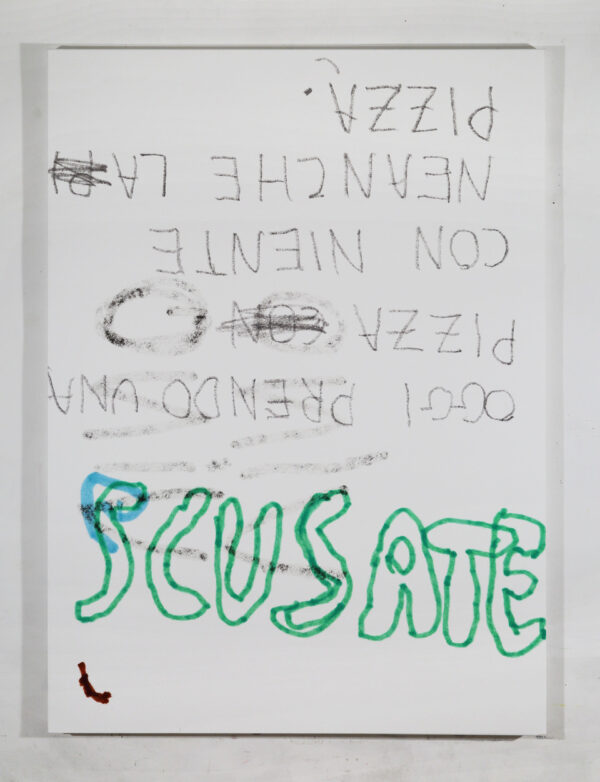 OGGI PRENDO UNA
PIZZA CON
CON NIENTE
NEANCHE LA
PIZZA.
SCUSATE